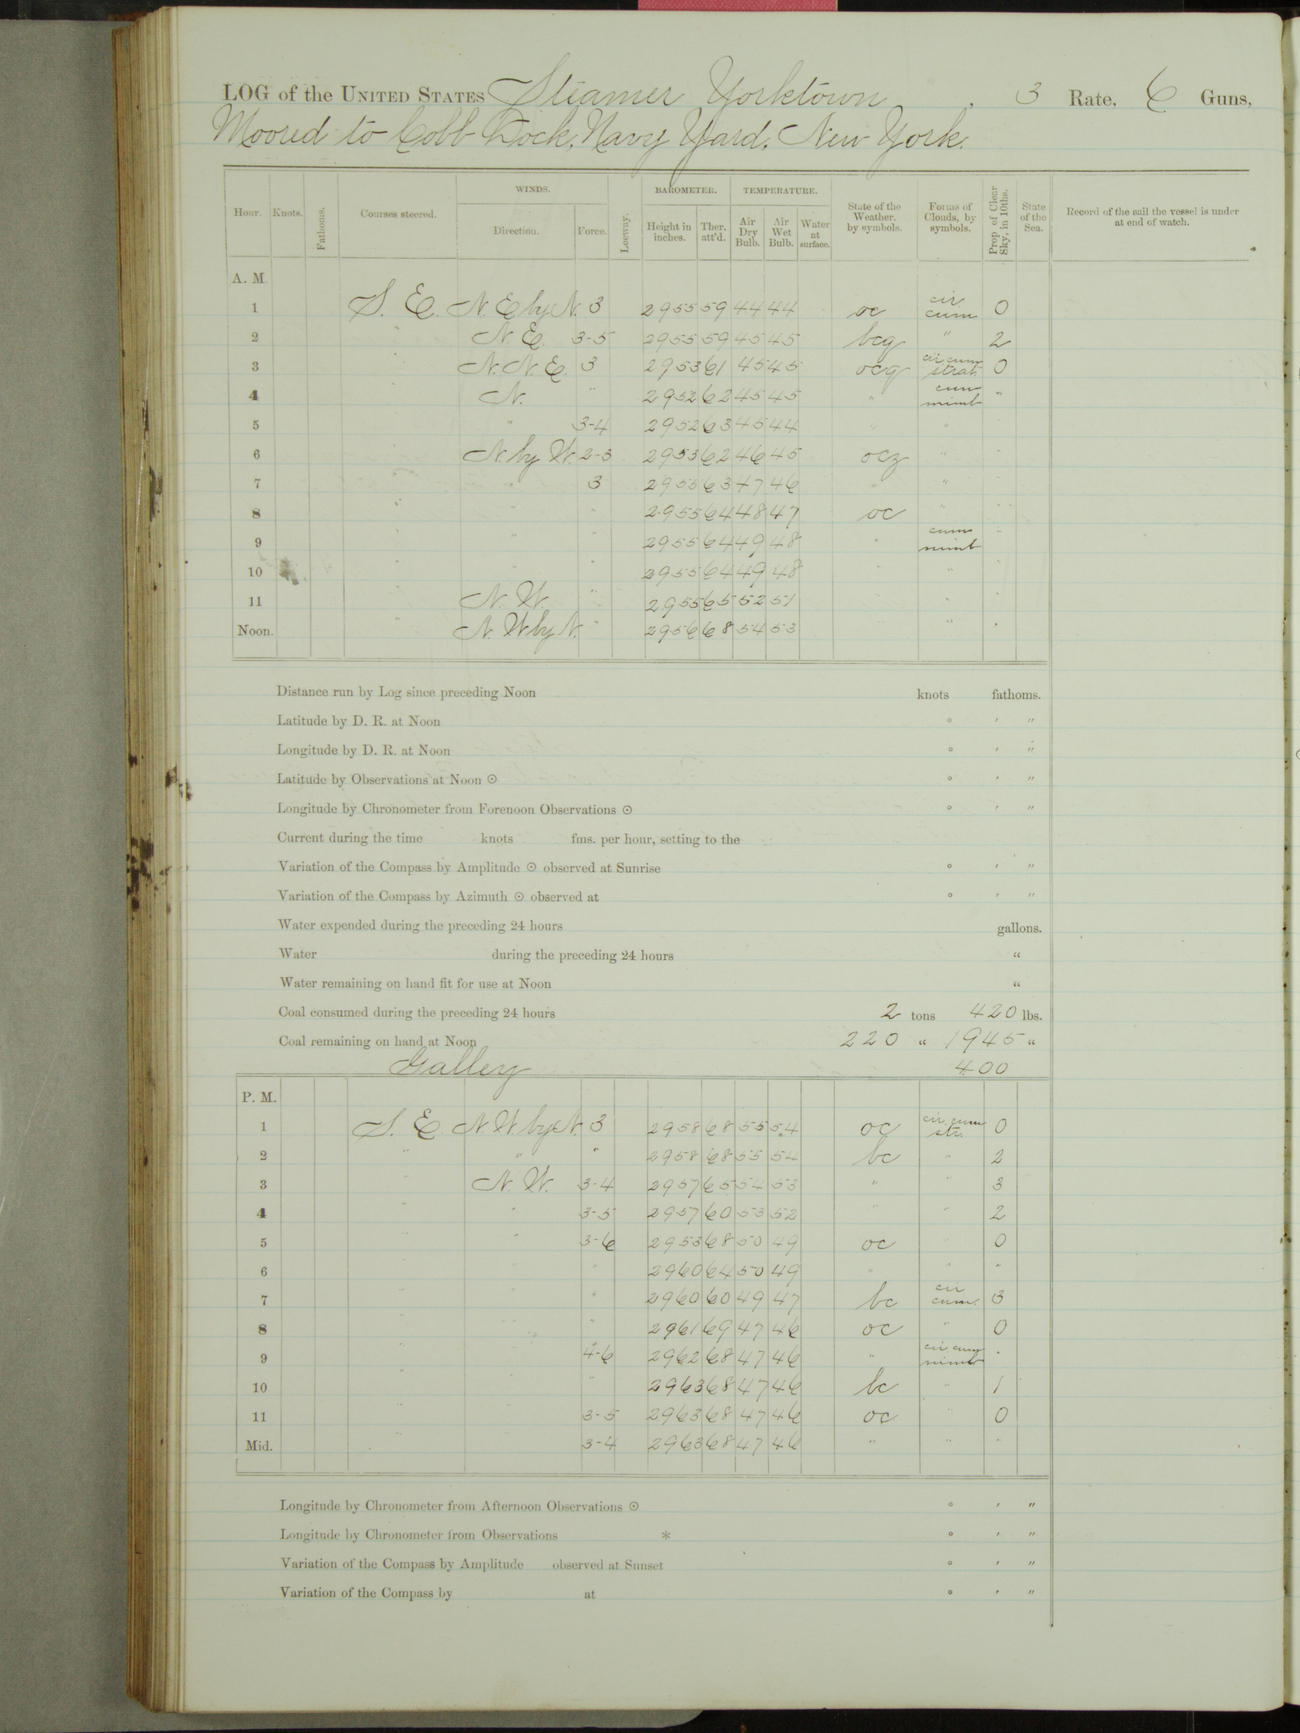 LOG of the UNITED STATES Steamer Yorktown, 3 Rate, 6 Guns,
Moored to Cobb Dock, Navy Yard, New York.
WINDS. BAROMETER. TEMPERATURE.
Hour. Knots. Fathoms. Courses steered. Direction. Force. Leeway. Height in inches. Ther. att'd. Air Dry Bulb. Air Wet Bulb. Water at surface. State of the Weather. by symbols. Forms of Clouds, by symbols. Prop of Clear Sky, in 10ths. State of the Sea. Record of the sail the vessel is under at end of watch.
A. M.
1 S. E. N. E by N. 3 2955 59 44 44 oc cir cum 0
2 " N. E. 3-5 2955 59 45 45 bcq " 2
3 " N. N. E. 3 2953 61 45 45 ocq cir cum strat 0
4 " N. " 2952 62 45 45 " cum nimb "
5 " " 3-4 2952 63 45 44 " " "
6 " N. by W. 2-3 2953 62 46 45 ocz " "
7 " " 3 2955 63 47 46 " " "
8 " " " 2955 64 48 47 oc " "
9 " " " 2955 64 49 48 " cum nimb "
10 " " " 2955 64 49 48 " " "
11 " N. W. " 2955 65 52 51 " " "
Noon. " N. W by N. " 2956 68 54 53 " " "
Distance run by Log since preceding Noon knots fathoms.
Latitude by D. R. at Noon ° ′ ″
Longitude by D. R. at Noon ° ′ ″
Latitude by Observations at Noon ☉ ° ′ ″
Longitude by Chronometer from Forenoon Observations ☉ ° ′ ″
Current during the time knots fms. per hour, setting to the
Variation of the Compass by Amplitude ☉ observed at Sunrise ° ′ ″
Variation of the Compass by Azimuth ☉ observed at ° ′ ″
Water expended during the preceding 24 hours gallons.
Water during the preceding 24 hours "
Water remaining on hand fit for use at Noon "
Coal consumed during the preceding 24 hours 2 tons 420 lbs.
Coal remaining on hand at Noon 220 " 1945 "
Galley 400
P. M.
1 S. E. N. W by N. 3 2958 68 55 54 oc cir cum str. 0
2 " " " 2958 68 55 54 bc " 2
3 " N. W. 3-4 2957 65 54 53 " " 3
4 " " 3-5 2957 60 53 52 " " 2
5 " " 3-6 2953 68 50 49 oc " 0
6 " " " 2960 64 50 49 " " "
7 " " " 2960 60 49 47 bc cir cum. 3
8 " " " 2961 69 47 46 oc " 0
9 " " 4-6 2962 68 47 46 " cir cum nimb "
10 " " " 2963 68 47 46 bc " 1
11 " " 3-5 2963 68 47 46 oc " 0
Mid. " " 3-4 2963 68 47 46 " " "
Longitude by Chronometer from Afternoon Observations ☉ ° ′ ″
Longitude by Chronometer from Observations * ° ′ ″
Variation of the Compass by Amplitude observed at Sunset ° ′ ″
Variation of the Compass by at ° ′ ″